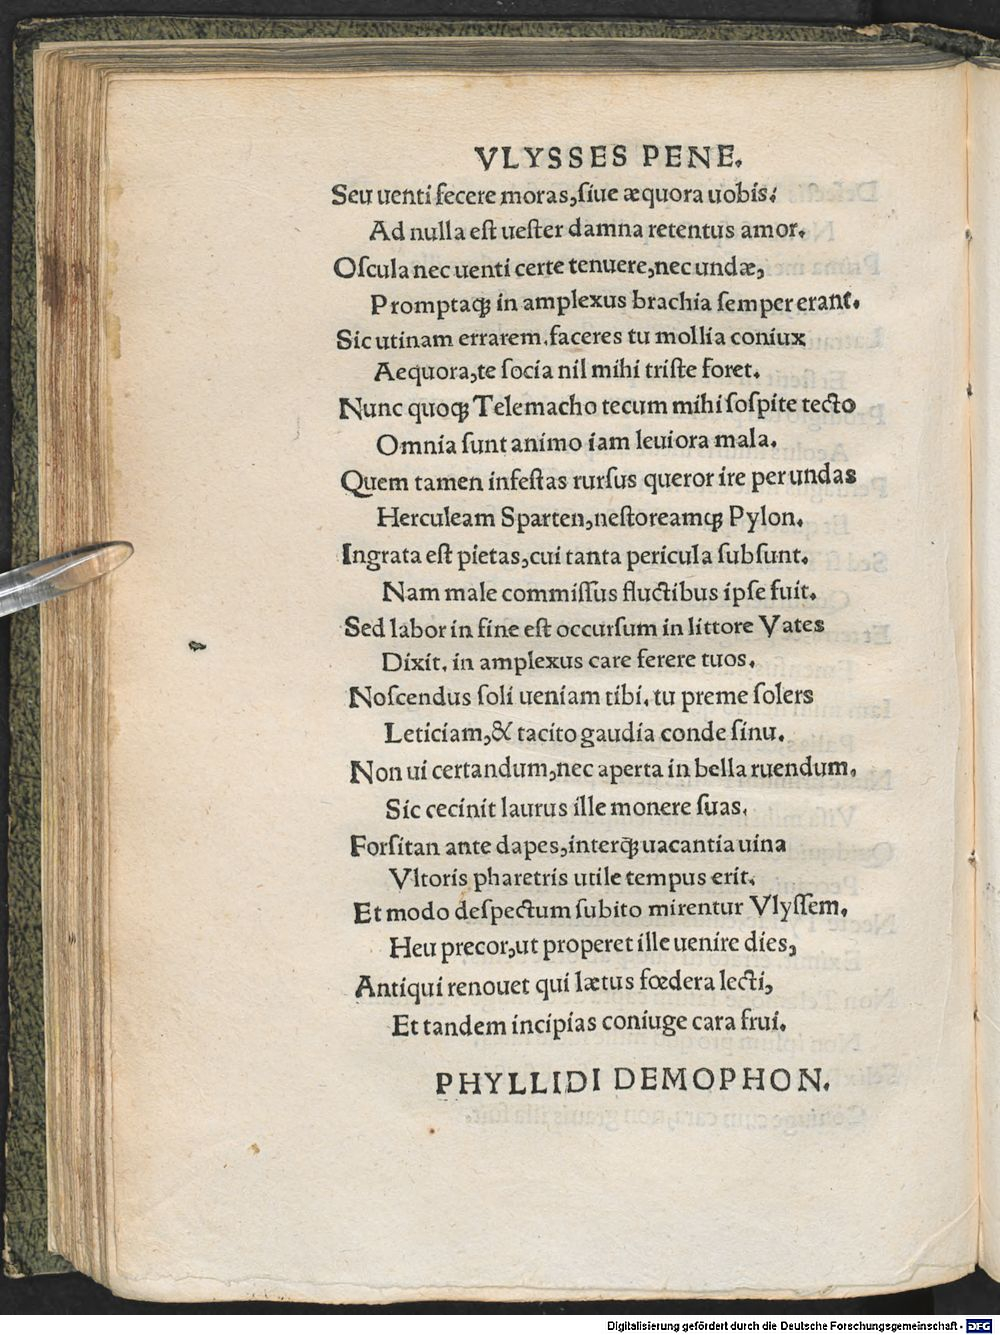 VLYSSES PENE.
Seu uenti fecere moras, siue æquora uobis:
Ad nulla est uester damna retentus amor.
Oscula nec uenti certe tenuere, nec undæ,
Promptaqꝫ in amplexus brachia semper erant.
Sic utinam errarem. faceres tu mollia coniux
Aequora, te socia nil mihi triste foret.
Nunc quoqꝫ Telemacho tecum mihi sospite tecto
Omnia sunt animo iam leuiora mala.
Quem tamen infestas rursus queror ire per undas
Herculeam Sparten, nestoreamqꝫ Pylon.
Ingrata est pietas, cui tanta pericula subsunt.
Nam male commissus fluctibus ipse fuit.
Sed labor in fine est occursum in littore Vates
Dixit. in amplexus care ferere tuos.
Noscendus soli ueniam tibi. tu preme solers
Leticiam, & tacito gaudia conde sinu.
Non ui certandum, nec aperta in bella ruendum.
Sic cecinit laurus ille monere suas.
Forsitan ante dapes, interqꝫ uacantia uina
Vltoris pharetris utile tempus erit.
Et modo despectum subito mirentur Vlyssem.
Heu precor, ut properet ille uenire dies,
Antiqui renouet qui lætus fœdera lecti,
Et tandem incipias coniuge cara frui.
PHYLLIDI DEMOPHON.
Digitalisierung gefördert durch die Deutsche Forschungsgemeinschaft - DFG